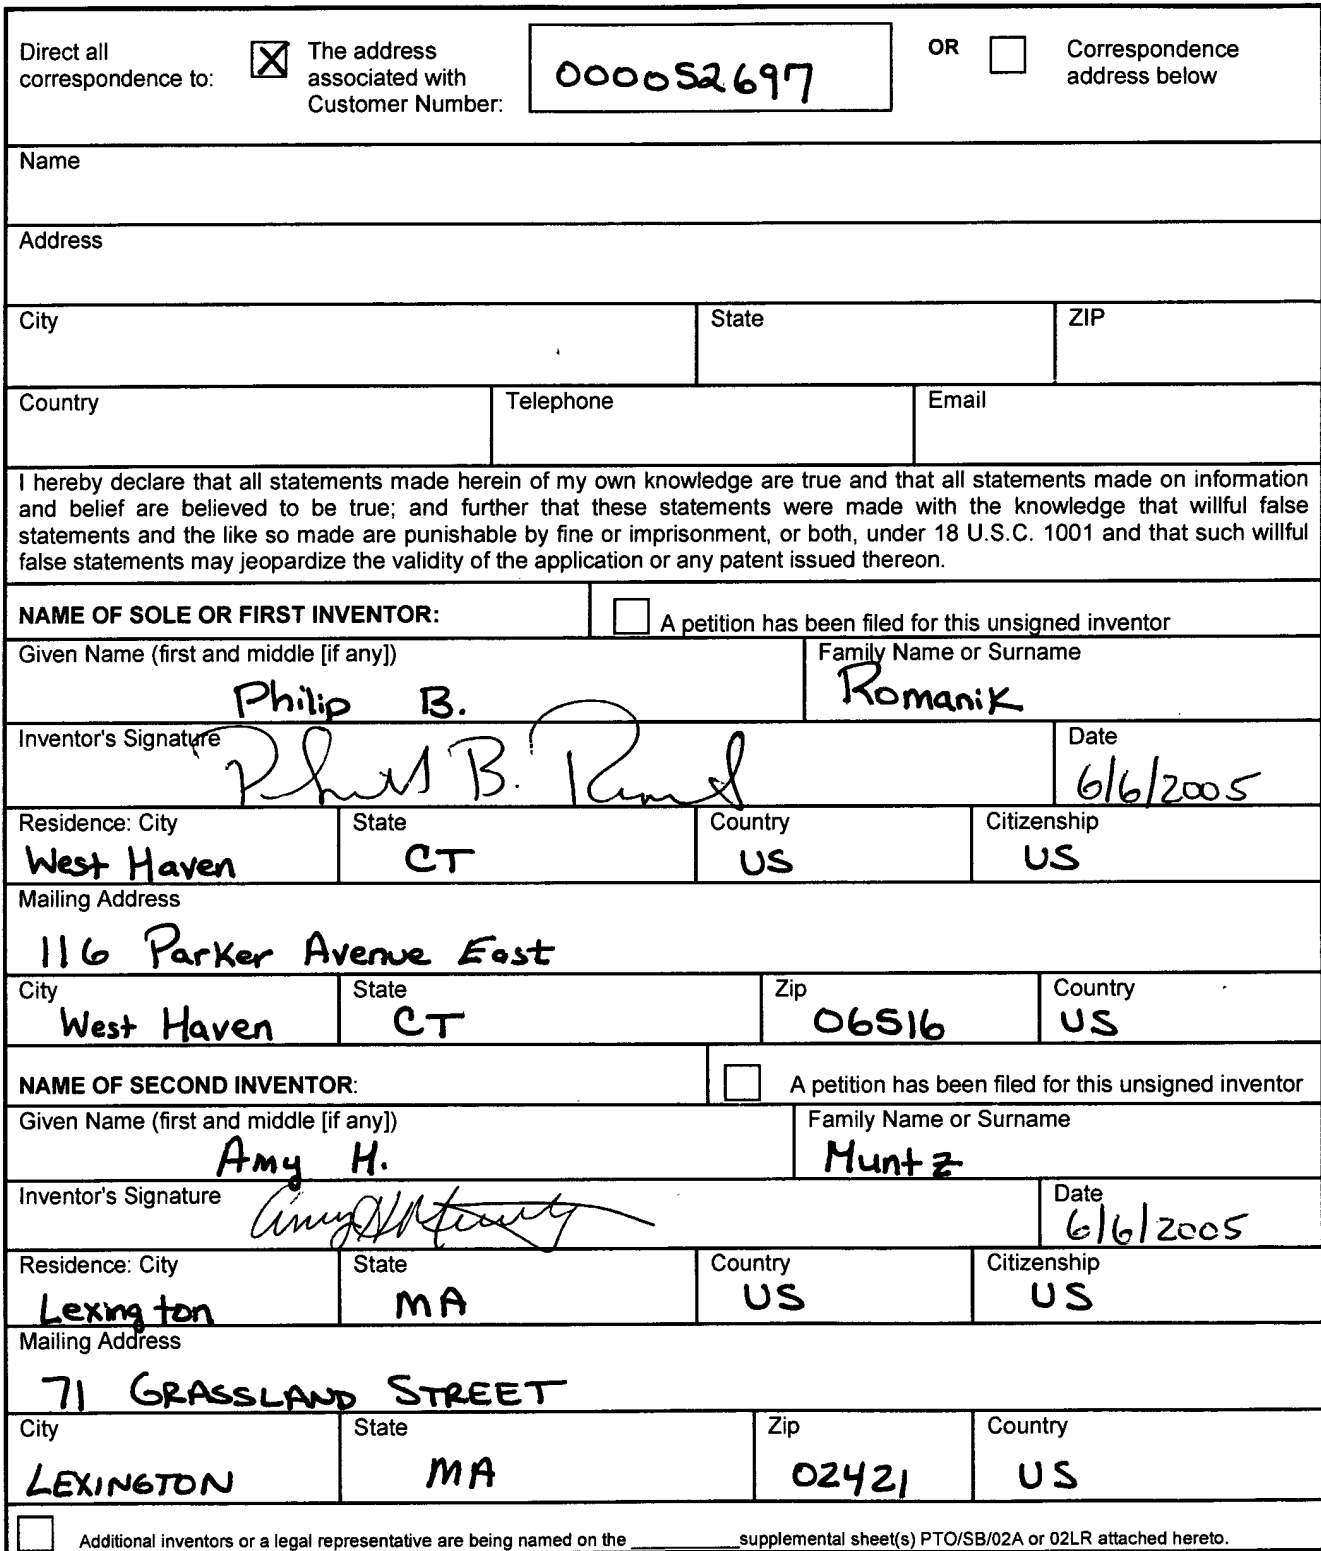 Direct all correspondence to:
☒ The address associated with Customer Number:
000052697
OR
☐ Correspondence address below
Name
Address
City
State
ZIP
Country
Telephone
Email
I hereby declare that all statements made herein of my own knowledge are true and that all statements made on information
and belief are believed to be true; and further that these statements were made with the knowledge that willful false
statements and the like so made are punishable by fine or imprisonment, or both, under 18 U.S.C. 1001 and that such willful
false statements may jeopardize the validity of the application or any patent issued thereon.
NAME OF SOLE OR FIRST INVENTOR:
☐ A petition has been filed for this unsigned inventor
Given Name (first and middle [if any])
Philip B.
Family Name or Surname
Romanik
Inventor's Signature
Date
6/6/2005
Residence: City
West Haven
State
CT
Country
US
Citizenship
US
Mailing Address
116 Parker Avenue East
City
West Haven
State
CT
Zip
06516
Country
US
NAME OF SECOND INVENTOR:
☐ A petition has been filed for this unsigned inventor
Given Name (first and middle [if any])
Amy H.
Family Name or Surname
Muntz
Inventor's Signature
Date
6/6/2005
Residence: City
Lexington
State
MA
Country
US
Citizenship
US
Mailing Address
71 GRASSLAND STREET
City
LEXINGTON
State
MA
Zip
02421
Country
US
☐ Additional inventors or a legal representative are being named on the ________supplemental sheet(s) PTO/SB/02A or 02LR attached hereto.